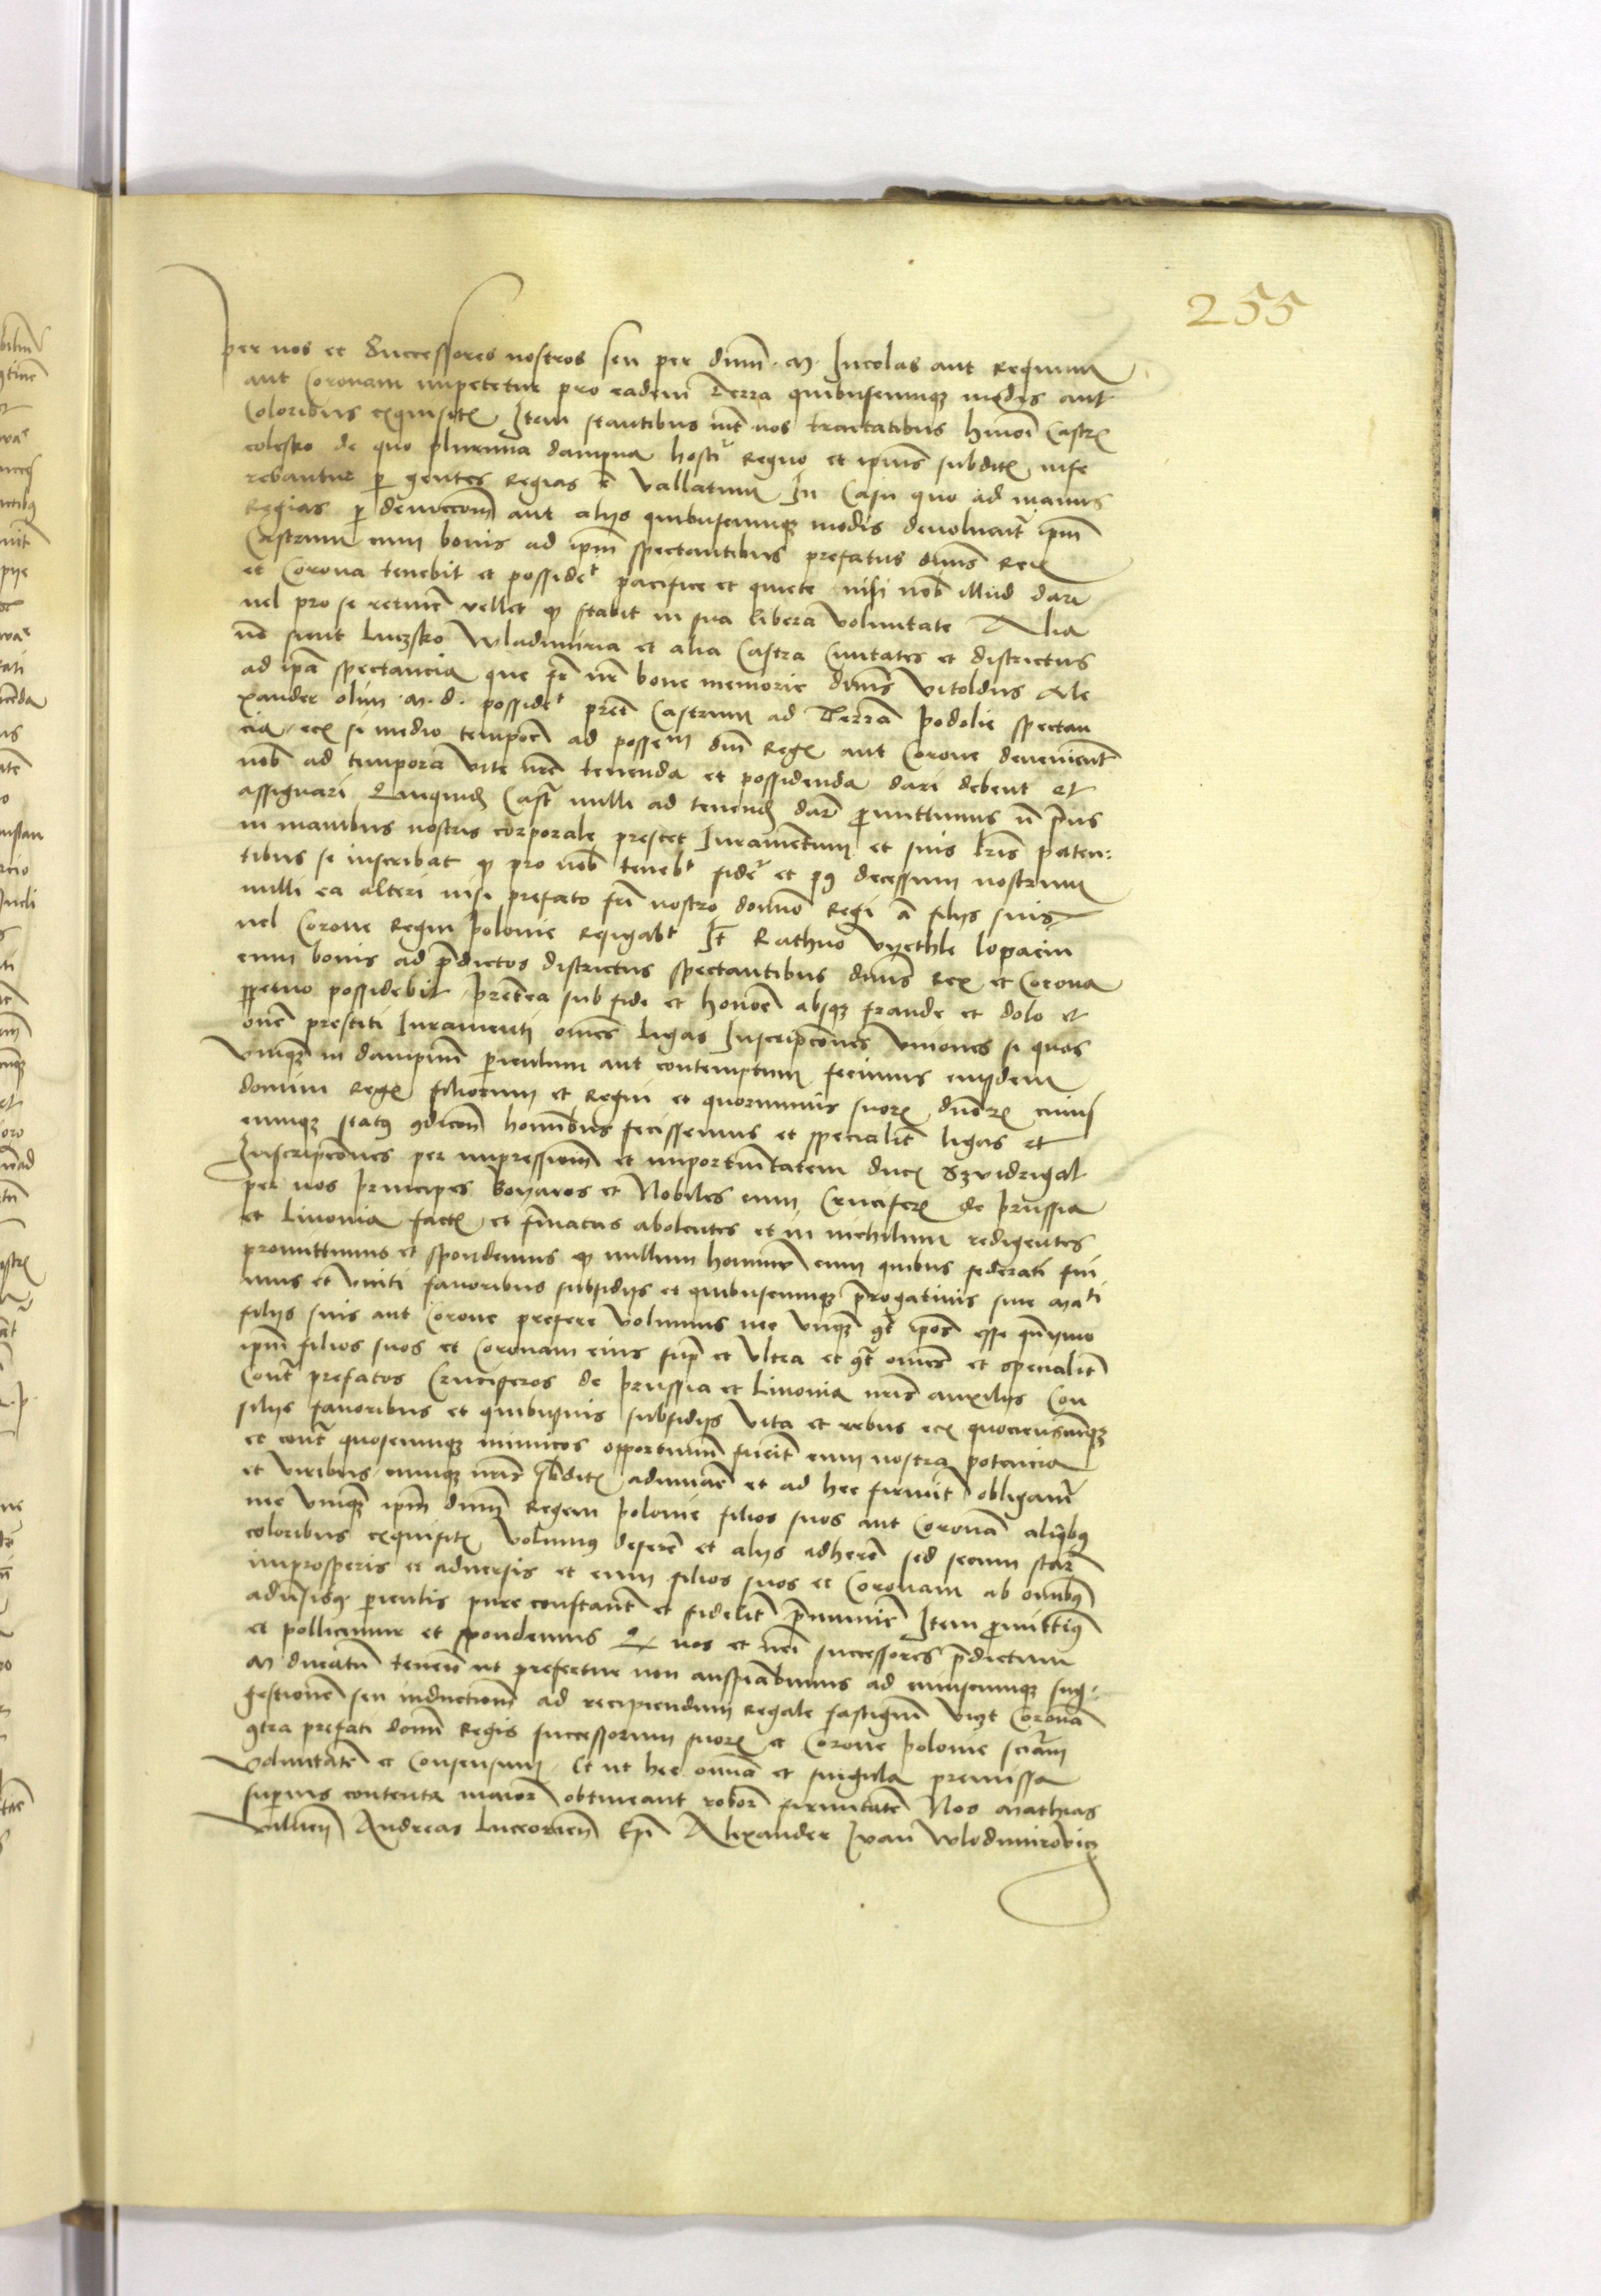 255
per nos et Successores nostros seu per dnm M. Incolas aut Regnum
aut Coronam impetetur pro eadem Terra quibuscumqz modis aut
Coloribus exquisit Item stantibus int nos tractatibus hmoi Castrum
olesko de quo plurima dampna Regno et ipius subdit infe
rebantur p gentes Regias e Vallatum In Casu quo ad manus
Regias p dem aut alys quibuscumqz modis devoluait ipm
Castrum cum bonis ad ipm spectantibus prefatus dnus Rex
et Corona tenebit et posside t pacifice et quiete nisi nob illud dare
vel pro se retine vellet qz stabit in sua libera Voluntate Alia
vo sunt Luczsko Wladimiria et alia Castra Civitates et districtus
ad ipa spectancia que fr nr bone memorie dnus Vitoldus Ale
xander olim M. d. posside t pret Castrum ad Terra podolie spectan
cia etc si medio tempore ad posse dni Reg aut Corone devenient
nob ad tempora Vite nre tenenda et possidenda dari debent et
assignari Quiquid Cast nulli ad tenend dare promittimus n prius
in manibus nostris corporale prestet Iuramentum et suis lris paten:
tibus se inscribat qz pro nob teneb t fide r et post decessum nostrum
nulli ea alteri nisi prefato fri nostro domno Regi a filys suis
vel Corone Regni polonie Resigab t It Rathno Vyethle lopacin
cum bonis ad predictos districtus spectantibus dnus Rex et Corona
perpetuo possidebit Preterea sub fide et honore absqz fraude et dolo et
one prestiti Iuramenti omes ligas Inscripciones Uniones si quas
Unqz in dampnum periculum aut contemptum fecimus eiusdem
domini Reg filiorum et Regni et quorumvis suor dnior cuius
cumqz status condicon hominibus fecissemus et specialit ligas et
Inscripciones per impressionem et importunitatem ducis Szvidrigal
per nos principes Boyaros et Nobiles cum Crucifer de prussia
et Livonia fact et firmatas abolentes et in nichilum redigentes
promittimus et spondemus qz nullum hominem cum quibus federati sui
mus et Uniti favoribus subsidys et quibuscumqz prerogativis sue Mati
filys suis aut Corone prefere Volumus nec Unqz contra ipos esse quinymo
ipm filios suos et Coronam eius sup et Ultra et contra omes et specialit
Contra prefatos Crucigeros de prussia et Livonia nris auxilys Con
silys favoribus et quibusvis subsidys Vita et rebus etc quociescumqz
et contra quoscumqz inimicos opportunum fuerit cum nostra potencia
et viribus cumqz nris subdit adiuvare et ad hec firmit obligam
nec Unqz ipm dnm Regem polonie filios suos aut Corona aliqbus
coloribus exquisit Volumus deserere et alys adherere sed secum stare
inprosperis et adversis et cum filios suos et Coronam ab omnibus
adversisqz periculis pure constant et fidelit premunire Item promittimus
et pollicemur et spondemus Q nos et nri successores predictum
M ducatum tenent ut prefertur non anspirabimus ad cuiuscumqz sug-
gestionem seu inductionem ad recipiendum Regale fastigium Corona
contra prefati domni Regis successorum suor et Corone polonie sciam
Voluntate et Consensum Et ut hec omnia et singula premissa
superius contenta maior obtineant robor firmitate Nos Mathias
Vilnen Andreas Luceorien Epi Alexander Ivan Wlodimirovicz